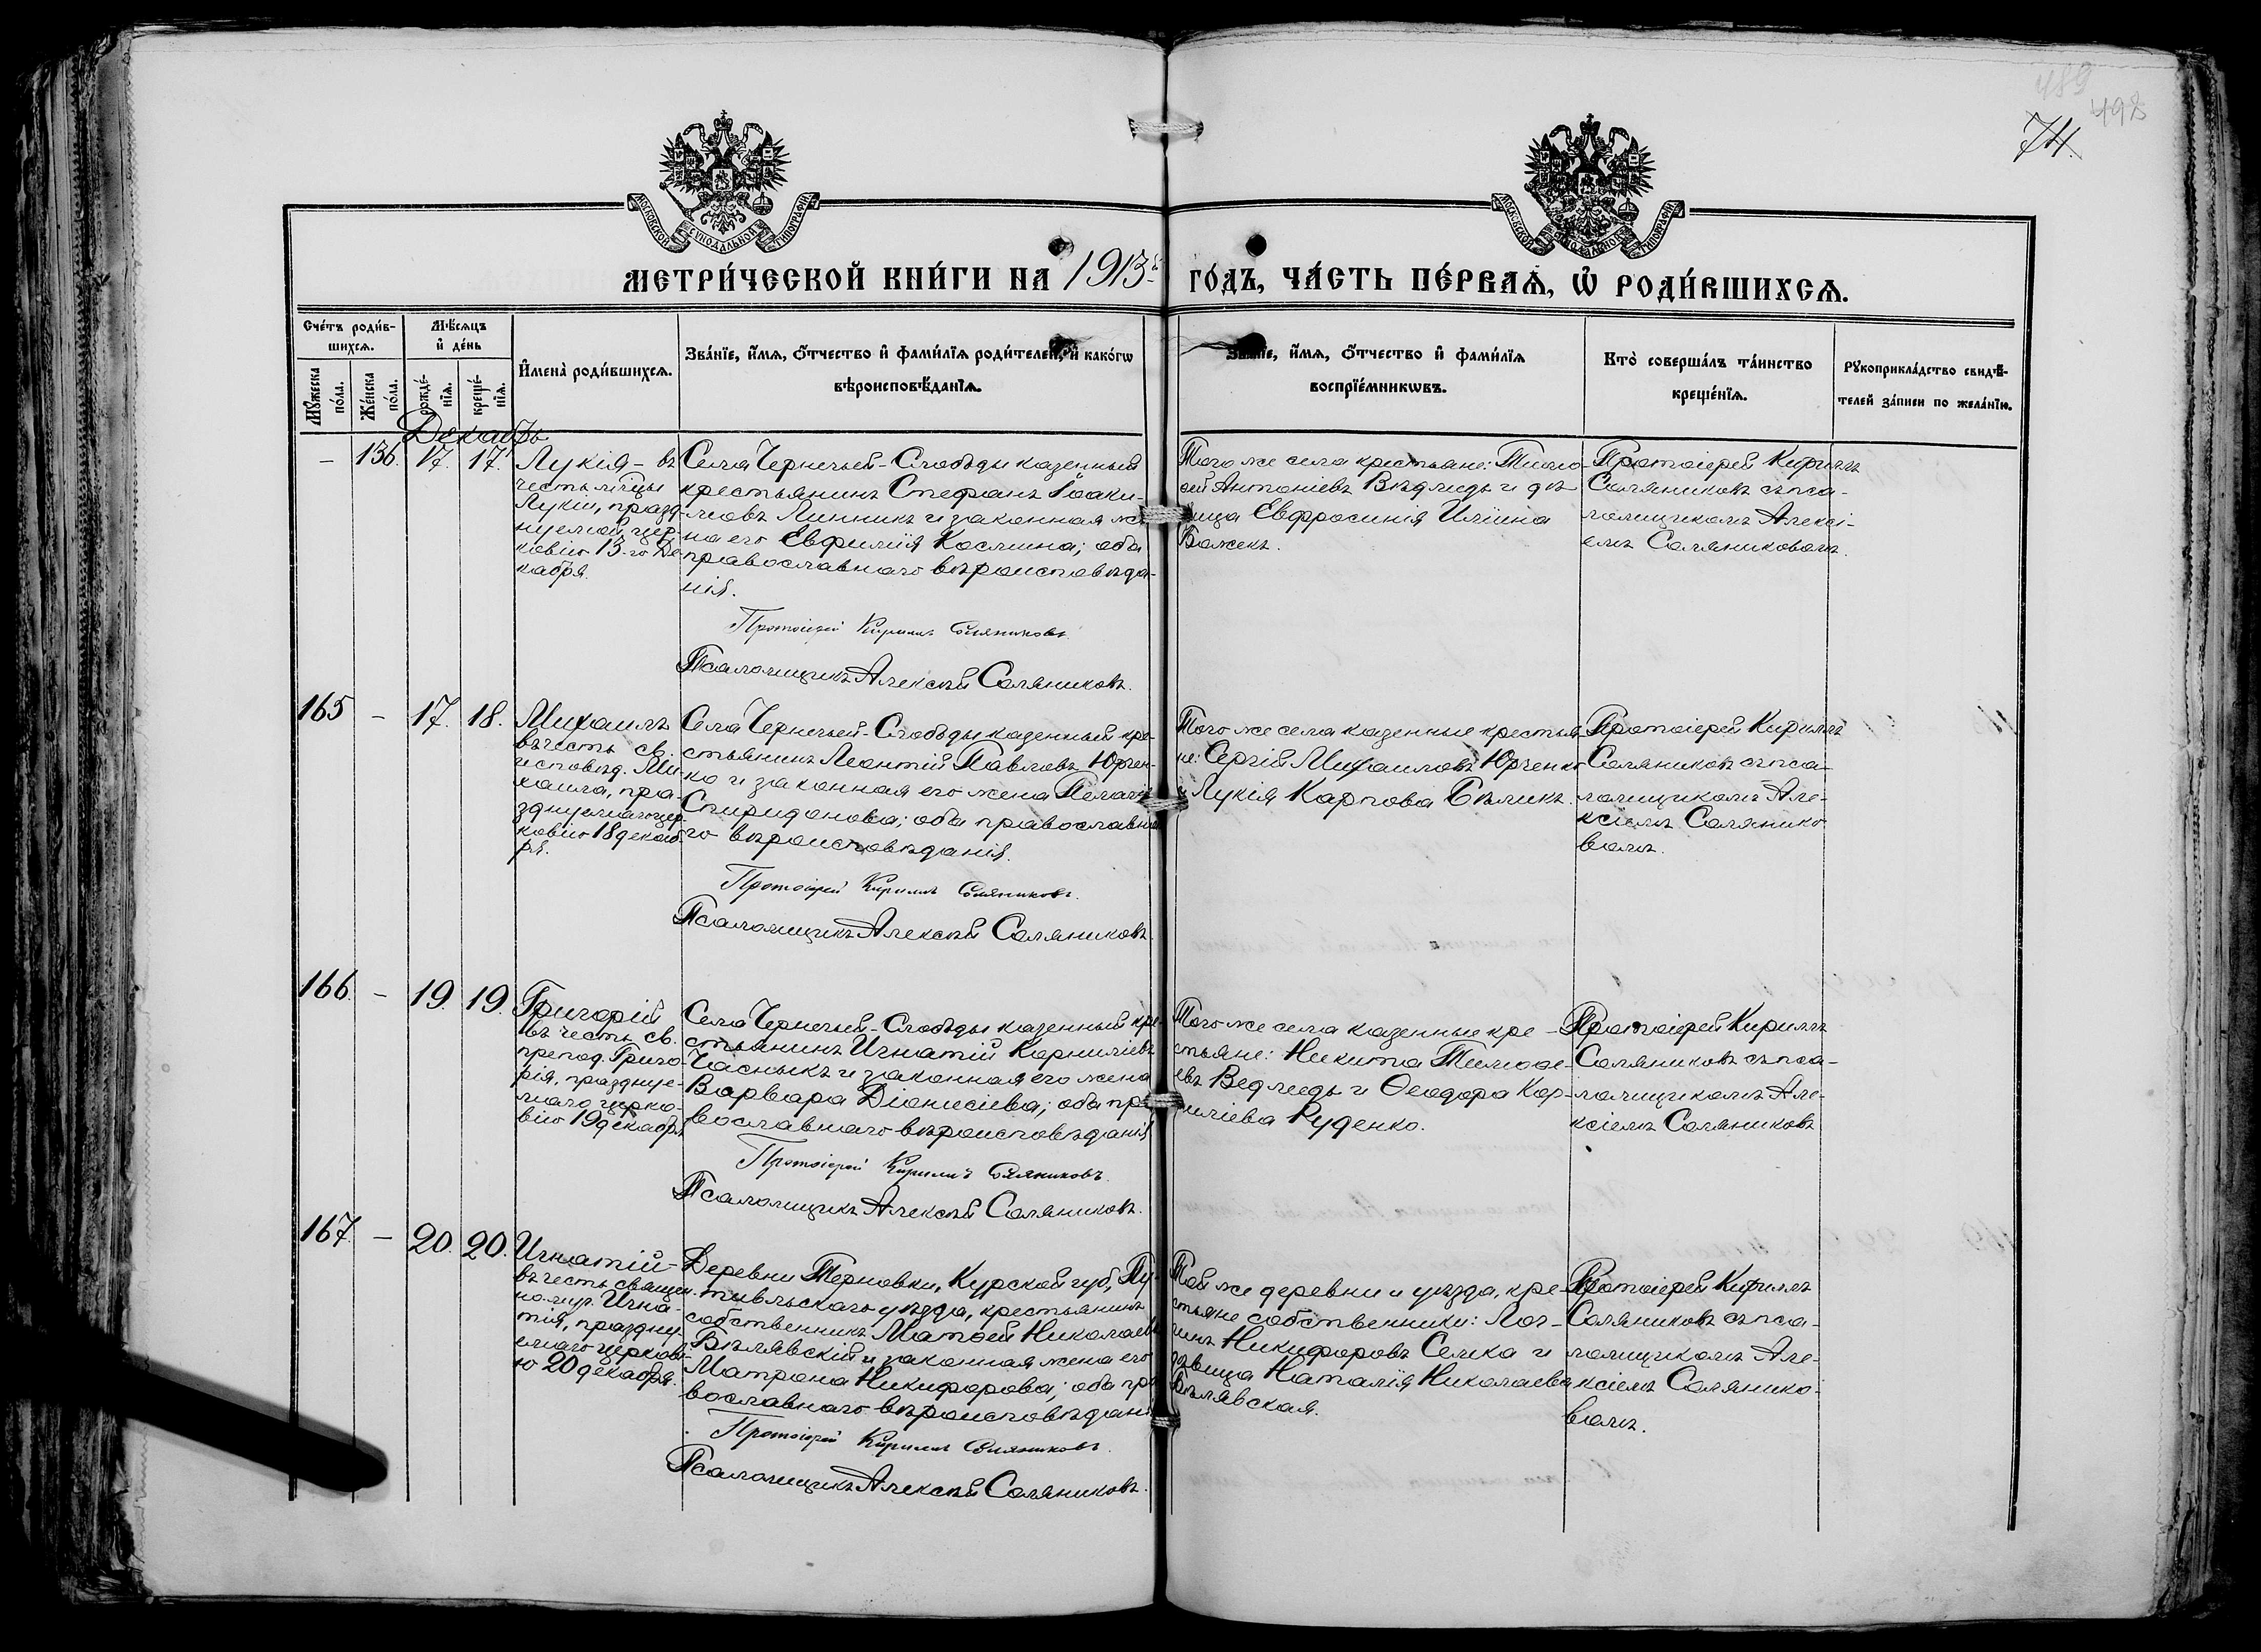 489
498
74.
МОСКОВСКОЙ СѴНОДАЛЬНОЙ ТИПОГРАФІИ
МОСКОВСКОЙ СѴНОДАЛЬНОЙ ТИПОГРАФІИ
МЕТРИ́ЧЕСКОЙ КНИ́ГИ НА 1913й ГО́ДЪ, ЧА́СТЬ ПЕ́РВАѦ, Ѽ РОДИ́ВШИХСѦ.
Сче́тъ роди́в-
шихсѧ.
Мꙋ́жеска по́ла.
Же́нска по́ла.
Мѣ́сѧцъ
и҆ де́нь
рожде́-
нїѧ.
креще́-
нїѧ.
И҆мена̀ роди́вшихсѧ.
Зва́нїе, и҆́мѧ, ѻ҆́тчество и҆ фами́лїѧ роди́телей, и҆ како́гѡ
вѣроисповѣ́данїѧ.
Зва́нїе, и҆́мѧ, ѻ҆́тчество и҆ фами́лїѧ
воспрїе́мникѡвъ.
Кто̀ соверша́лъ та́инство
креще́нїѧ.
Рꙋкоприкла́дство свидѣ́-
телей за́писи по жела́нїю.
Декабрь
– 136. 17. 17.
Лукія – въ
честь м̃цы
Лукіи, празд-
нуемой цер-
ковію 13-го Де-
кабря.
Села Чернечьей-Слободы казенный
крестьянинъ Стефанъ Іоаки-
мовъ Линникъ и законная же-
на его Евфимія Космина; оба
православнаго вѣроисповѣда-
нія.
Протоіерей Кириллъ Соляниковъ
Псаломщикъ Алексѣй Соляниковъ.
Того же села крестьяне: Тимо-
ѳей Антоніевъ Ведмедь и дѣ-
вица Евфросинія Иліина
Бажекъ.
Протоіерей Кириллъ
Соляниковъ съ пса-
ломщикомъ Алексі-
емъ Соляниковомъ.
165 – 17. 18.
Михаилъ
въ честь св.
исповѣд. Ми-
хаила, пра-
зднуемаго цер-
ковію 18 декаб-
ря.
Села Чернечьей-Слободы казенный кре-
стьянинъ Леонтій Павловъ Юрчен-
ко и законная его жена Пелагія
Спиридонова; оба православна-
го вѣроисповѣданія.
Протоіерей Кириллъ Соляниковъ.
Псаломщикъ Алексѣй Соляниковъ.
Того же села казенные крестья-
не: Сергій Михаиловъ Юрченко
и Лукія Карпова Бѣликъ.
Протоіерей Кириллъ
Соляниковъ съ пса-
ломщикомъ Але-
ксіемъ Солянико-
вомъ.
166. – 19. 19.
Григорій
въ честь св.
препод. Григо-
рія, праздкуе-
маго церко-
вію 19 декабря
Села Чернечьей-Слободы казенный кре-
стьянинъ Игнатій Корниліевъ
Часныкъ и законная его жена
Варвара Діонисіева; оба пра-
вославнаго вѣроисповѣданія
Протоіерей Кириллъ Соляниковъ.
Псаломщикъ Алексѣй Соляниковъ.
Того же села казенные кре-
стьяне: Никита Тимоѳе-
евъ Ведмедь и Ѳеодора Кор-
ниліева Руденко.
Протоіерей Кириллъ
Соляниковъ съ пса-
ломщикомъ Але-
ксіемъ Соляниковъ
167. – 20. 20.
Игнатій –
въ честь священ-
номуч. Игна-
тія, праздну-
емаго церкові-
ю 20 декабря.
Деревни Терновки, Курской губ, Пу-
тивльскаго уѣзда, крестьянинъ
собственникъ Матѳей Николаевъ
Бѣлявскій и законная жена его
Матрона Никифорова; оба пра-
вославнаго вѣроисповѣданія
Протоіерей Кириллъ Соляниковъ.
Псаломщикъ Алексѣй Соляниковъ.
Той же деревни и уѣзда, кре-
стьяне собственники: Лог-
гинъ Никифоровъ Семка и
дѣвица Наталія Николаева
Бѣлявская.
Протоіерей Кириллъ
Соляниковъ съ пса-
ломщикомъ Але-
ксіемъ Солянико-
вомъ.